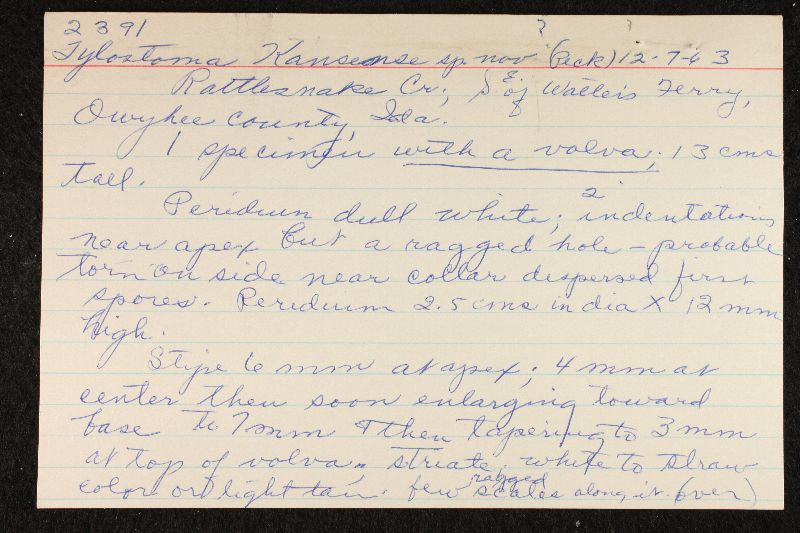 2391 ? ?
Tylostoma Kansense sp. nov (Peck) 12-7-43
Rattlesnake Cr., S E of Walters Ferry,
Owyhee County, Ida.
1 specimen with a volva; 13 cms
tall.
Peridium dull white; 2 indentations
near apex but a ragged hole - probable
torn on side near collar dispersed first
spores. Peridium 2.5 cms in dia X 12 mm
high.
Stipe 6 mm at apex; 4 mm at
center then soon enlarging toward
base to 7mm & then tapering to 3 mm
at top of volva; striate, white to straw
color or light tan. few ragged scales along it. (over)